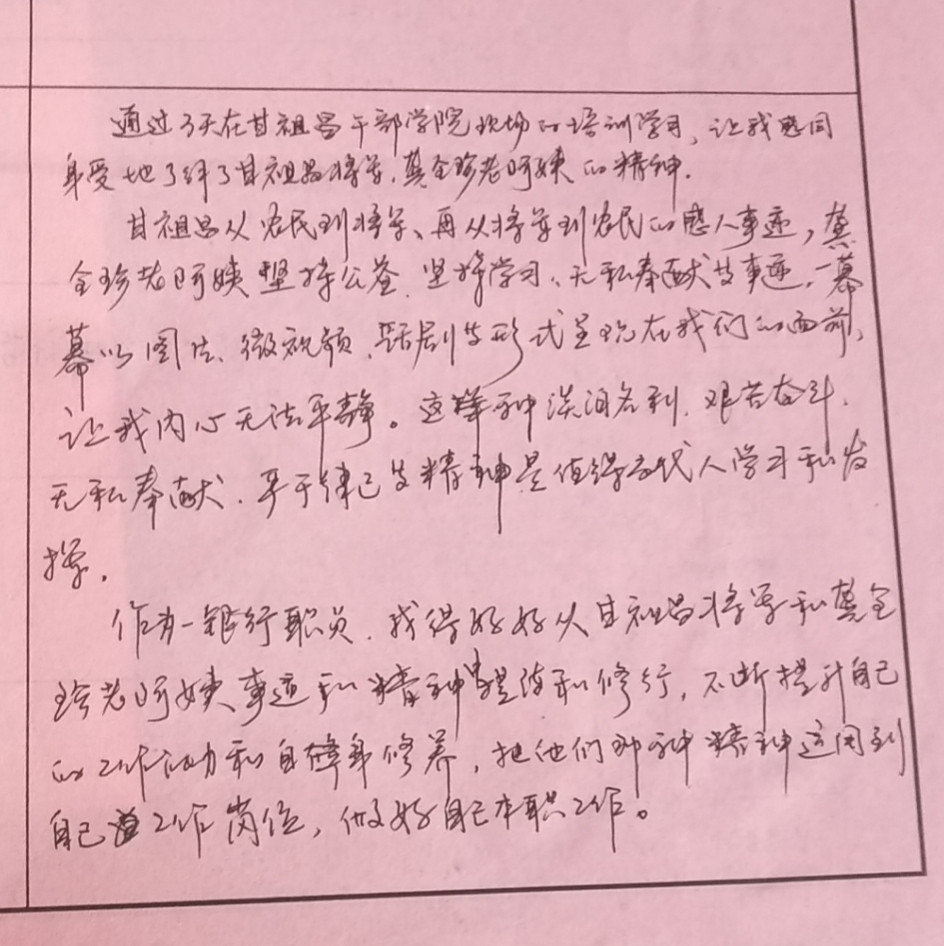 通过3天在甘祖昌干部学院现场的培训学习，让我感同
身受地了解了甘祖昌将军、龚全珍老阿姨的精神。
甘祖昌从农民到将军、再从将军到农民的感人事迹，龚
全珍老阿姨坚持公益、坚持学习、无私奉献等事迹，一幕
幕以图片、微视频、话剧等形式呈现在我们的面前，
让我内心无法平静。这种淡泊名利、艰苦奋斗、
无私奉献、严于律己等精神是值得当代人学习和发
扬。
作为一银行职员，我得好好从甘祖昌将军和龚全
珍老阿姨事迹和精神里读和修行，不断提升自己
的工作能力和自身修养，把他们那种精神运用到
自己工作岗位，做好自己本职工作。